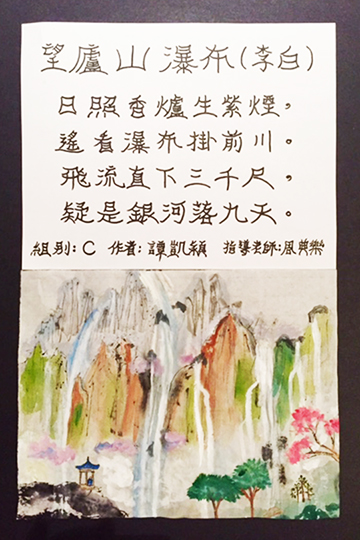 望廬山瀑布(李白)
日照香爐生紫煙，
遙看瀑布掛前川。
飛流直下三千尺，
疑是銀河落九天。
組別:C 作者:譚凱穎 指導老師:恩典樂